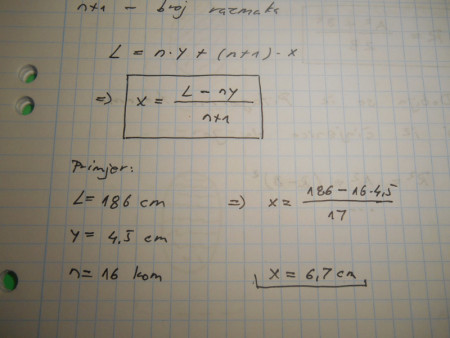 n+1 - broj razmaka
L = n·y + (n+1)·x
=> x = (L - ny) / (n+1)
Primjer:
L = 186 cm => x = (186 - 16·4,5) / 17
y = 4,5 cm
n = 16 kom x = 6,7 cm